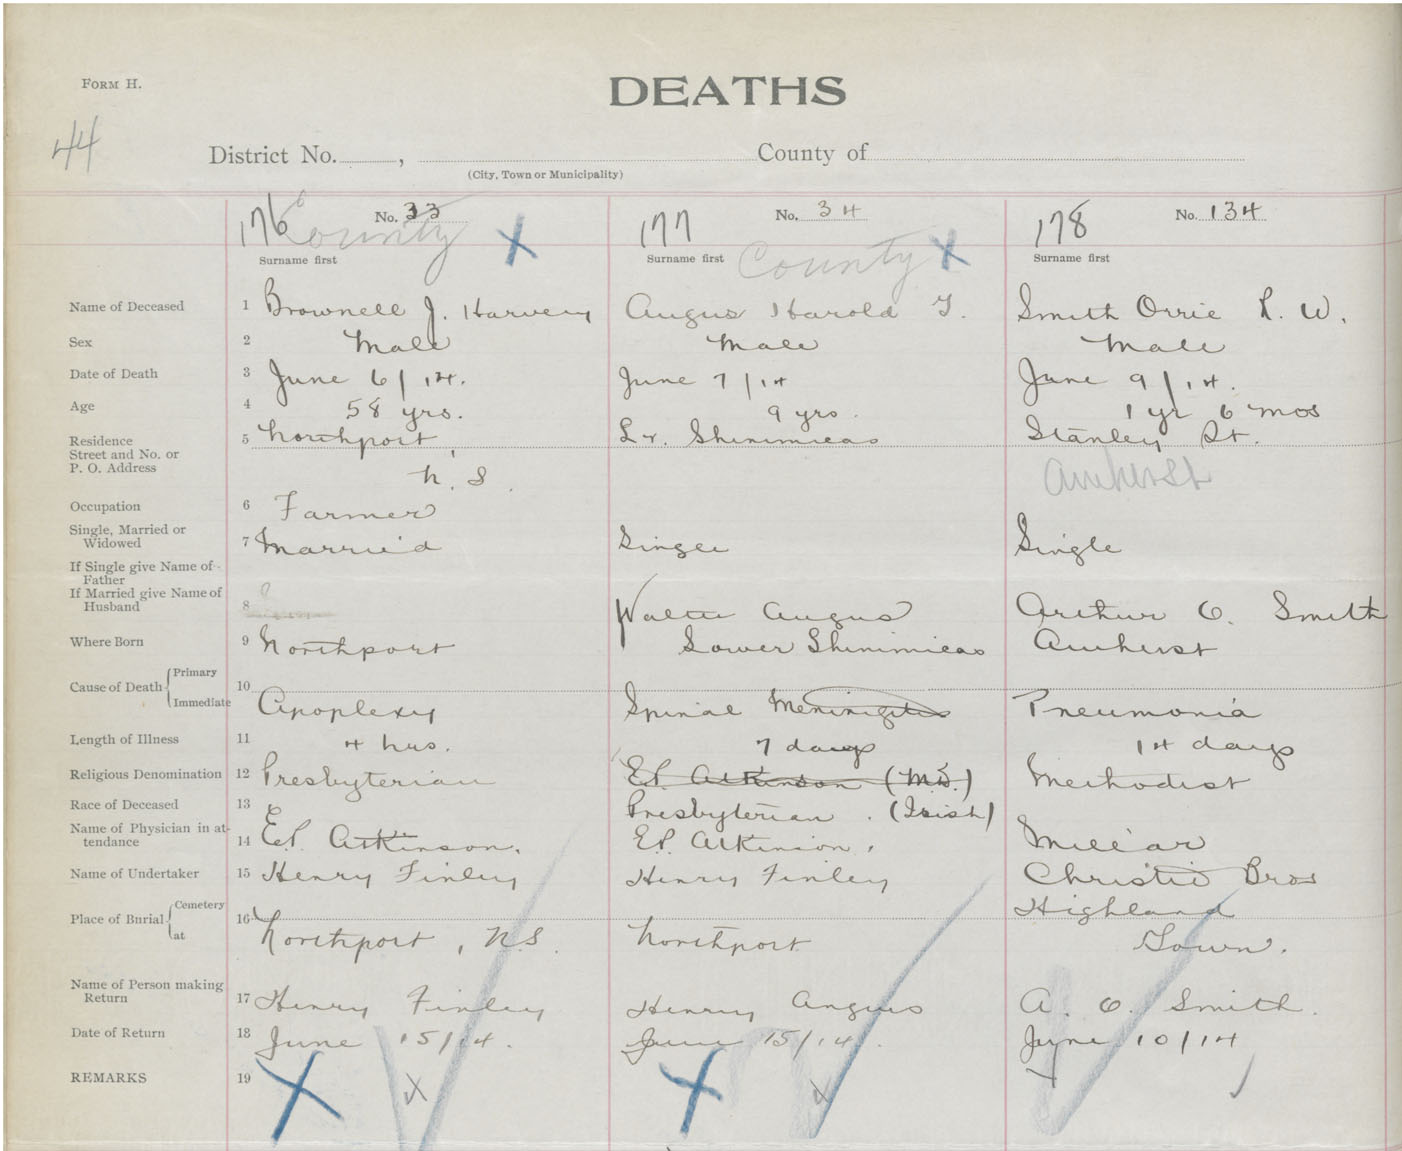 FORM H.
DEATHS
44
District No. , County of
(City, Town or Municipality)
176 No. 33
County X
Surname first
177 No. 34
County X
Surname first
178 No. 134
Surname first
Name of Deceased 1 Brownell J. Harvey Angus Harold Smith Orrie R. W.
Sex 2 Male Male Male
Date of Death 3 June 6/14. June 7/14 June 9/14.
Age 4 58 yrs. 9 yrs. 1 yr 6 mos
Residence 5 Northport Lr. Shinimicas Stanley St.
Street and No. or
P. O. Address N. S. Amherst
Occupation 6 Farmer
Single, Married or
Widowed 7 Married Single Single
If Single give Name of
Father
If Married give Name of
Husband 8 Walter Angus Arthur O. Smith
Where Born 9 Northport Lower Shinimicas Amherst
Cause of Death { Primary 10
Immediate Apoplexy Spinal Meningitis Pneumonia
Length of Illness 11 4 hrs. 7 days 14 days
Religious Denomination 12 Presbyterian E.P. Atkinson (M.D.) Methodist
Race of Deceased 13 Presbyterian. (Irish)
Name of Physician in at-
tendance 14 E.P. Atkinson. E.P. Atkinson. Millar
Name of Undertaker 15 Henry Finley Henry Finley Christie Bros
Place of Burial { Cemetery 16 Highland
at Northport, N.S. Northport Town.
Name of Person making
Return 17 Henry Finley Henry Angus A. O. Smith.
Date of Return 18 June 15/14. June 15/14. June 10/14
REMARKS 19 X x X x